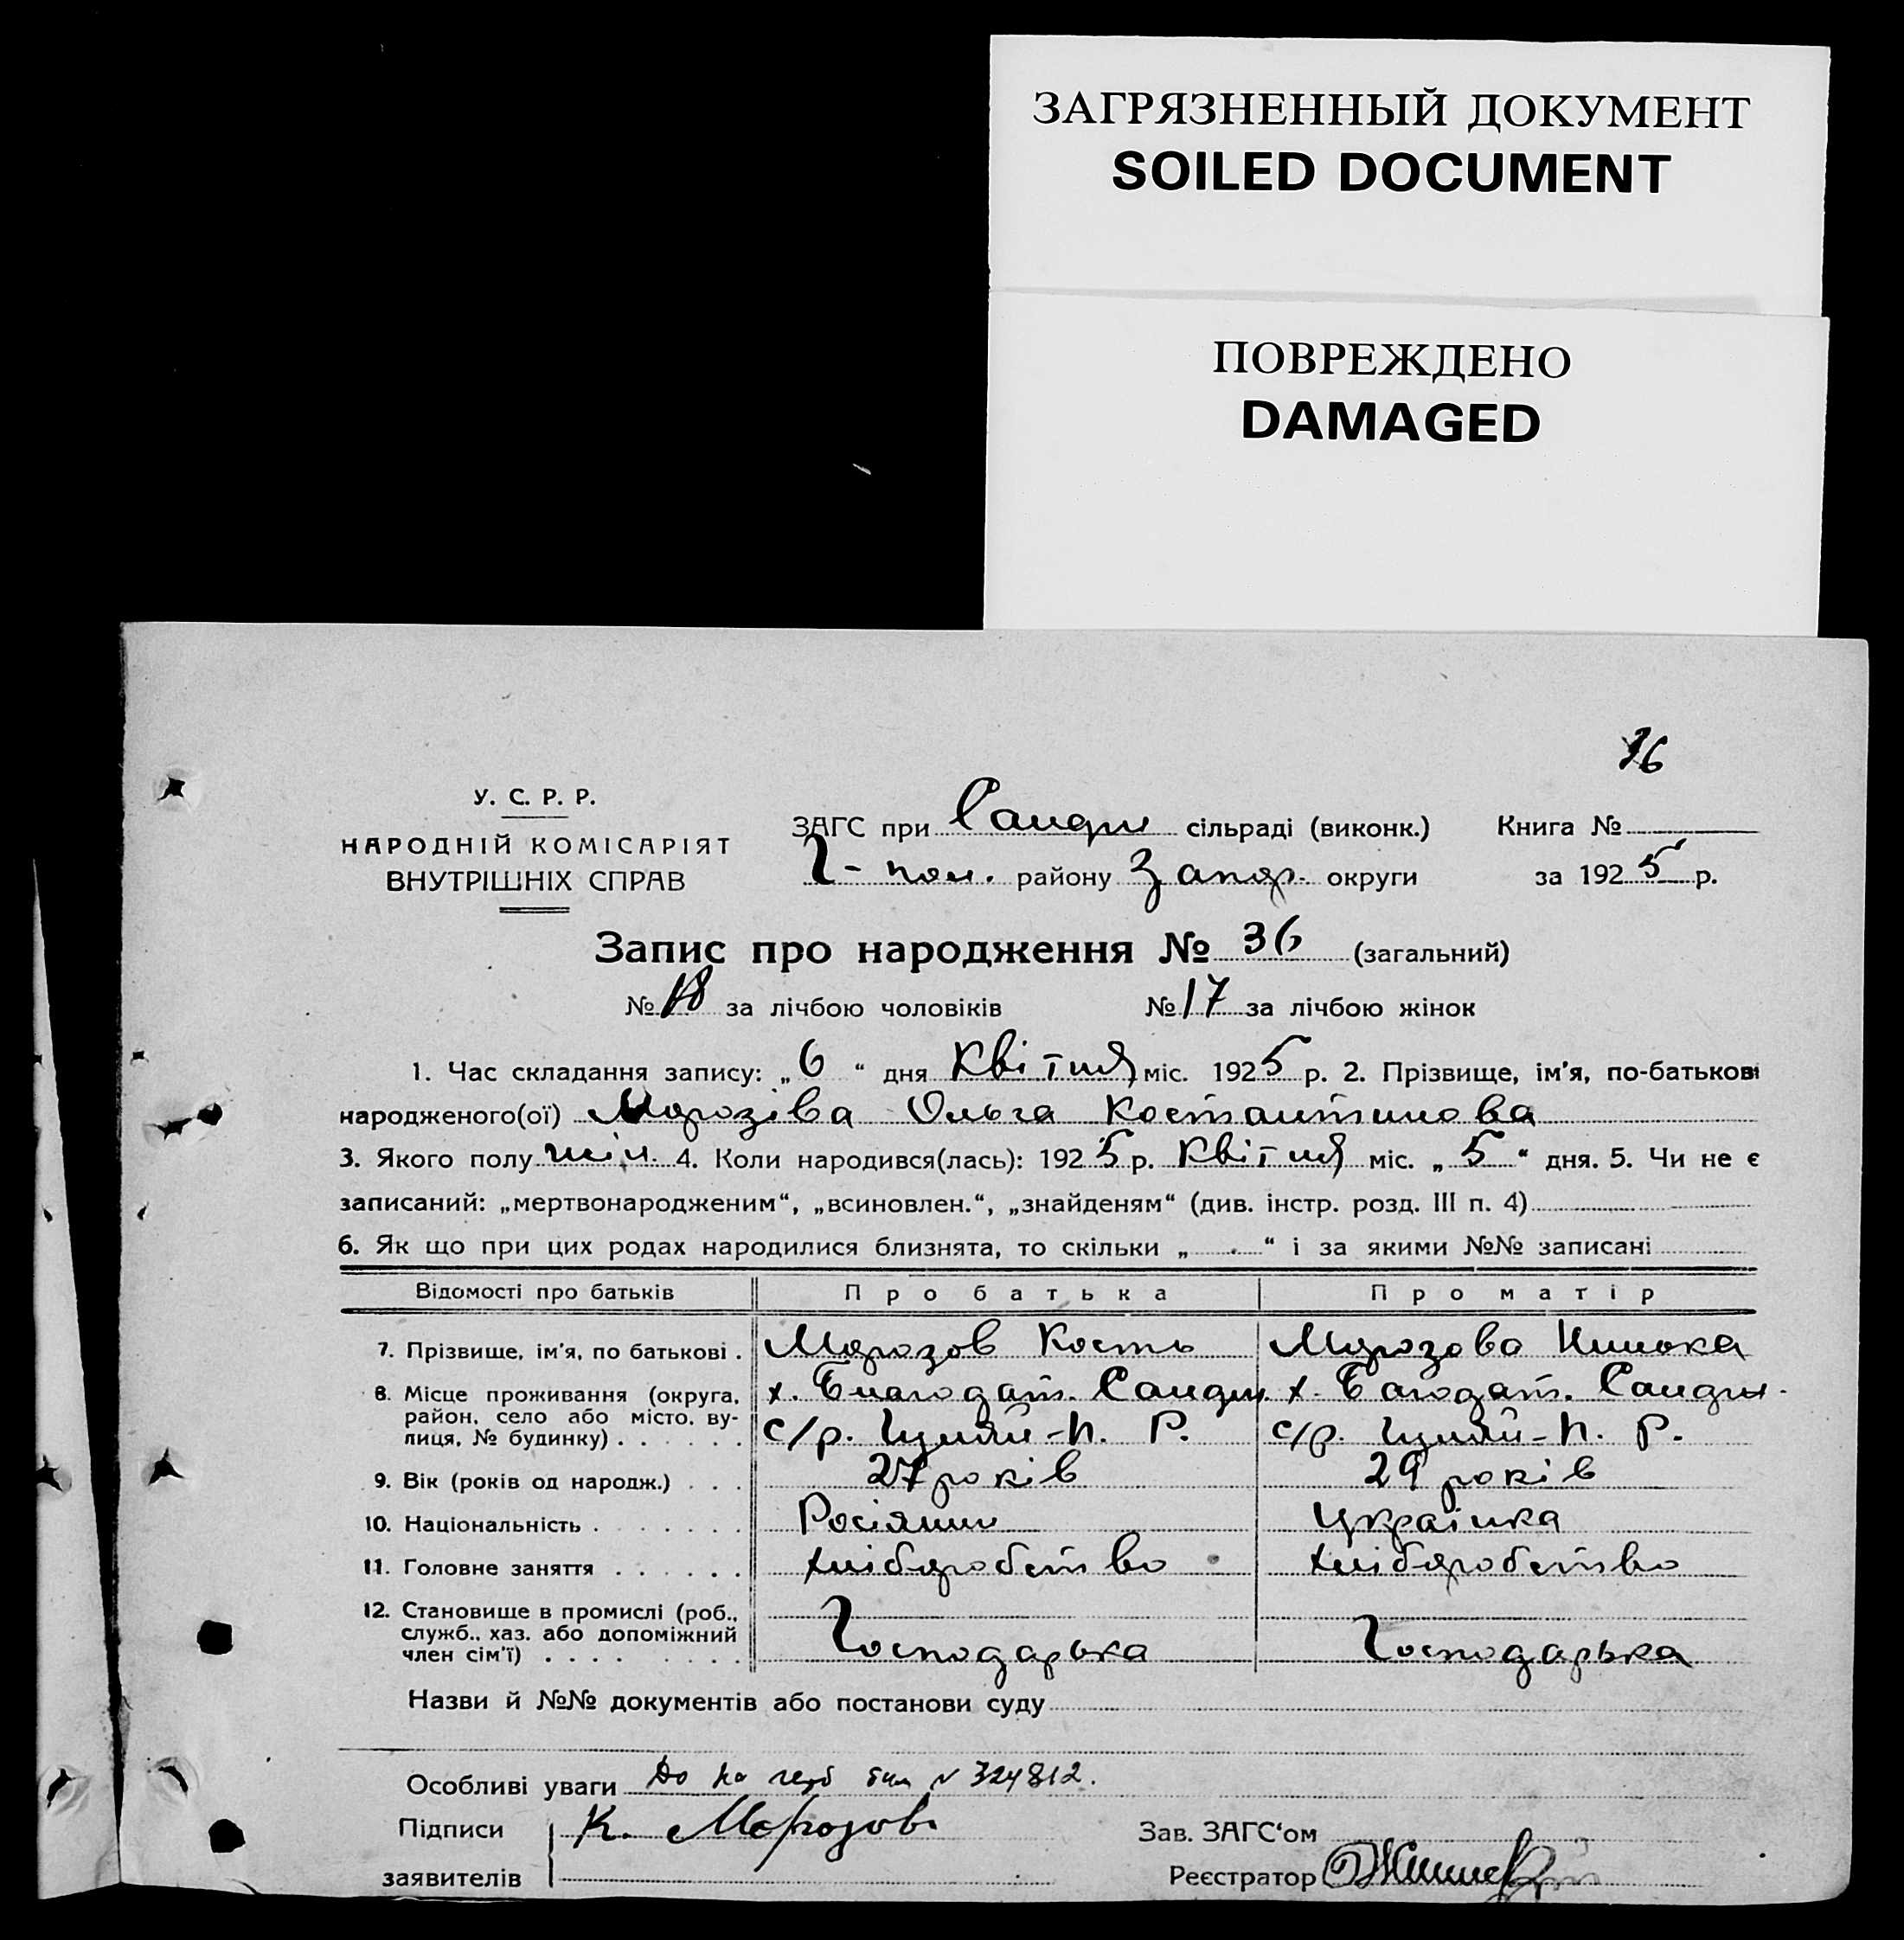 ЗАГРЯЗНЕННЫЙ ДОКУМЕНТ
SOILED DOCUMENT
ПОВРЕЖДЕНО
DAMAGED
У. С. Р. Р.
НАРОДНІЙ КОМІСАРІЯТ
ВНУТРІШНІХ СПРАВ
ЗАГС при сільраді (виконк.) Книга №
району Запор. округи за 1925 р.
Запис про народження № 36 (загальний)
№ за лічбою чоловіків № 17 за лічбою жінок
1. Час складання запису: „6“ дня Квітня міс. 1925 р. 2. Прізвище, ім'я, по-батькові
народженого(ої) Морозіва Ольга Костантинова
3. Якого полу жін. 4. Коли народився(лась): 1925 р. Квітня міс. „5“ дня. 5. Чи не є
записаний: „мертвонародженим“, „всиновлен.“, „знайденям“ (див. інстр. розд. III п. 4)
6. Як що при цих родах народилися близнята, то скільки „ “ і за якими №№ записані
Відомості про батьків Про батька Про матір
7. Прізвище, ім'я, по батькові . Морозов Кость Морозова
8. Місце проживання (округа, район, село або місто, вулиця, № будинку) . . . . . . х. Благодат. с/р. Гуляй-П. Р. х. Багодат. с/р. Гуляй-П. Р.
9. Вік (років од народж.) . . . 27 років 29 років
10. Національність . . . . . . . Росіянин Українка
11. Головне заняття . . . . . . хліборобство хліборобство
12. Становище в промислі (роб., служб., хаз. або допоміжний член сім'ї) . . . . . . . . Господарька Господарька
Назви й №№ документів або постанови суду
Особливі уваги № 324812.
Підписи К. Морозов Зав. ЗАГС'ом
заявителів Реєстратор